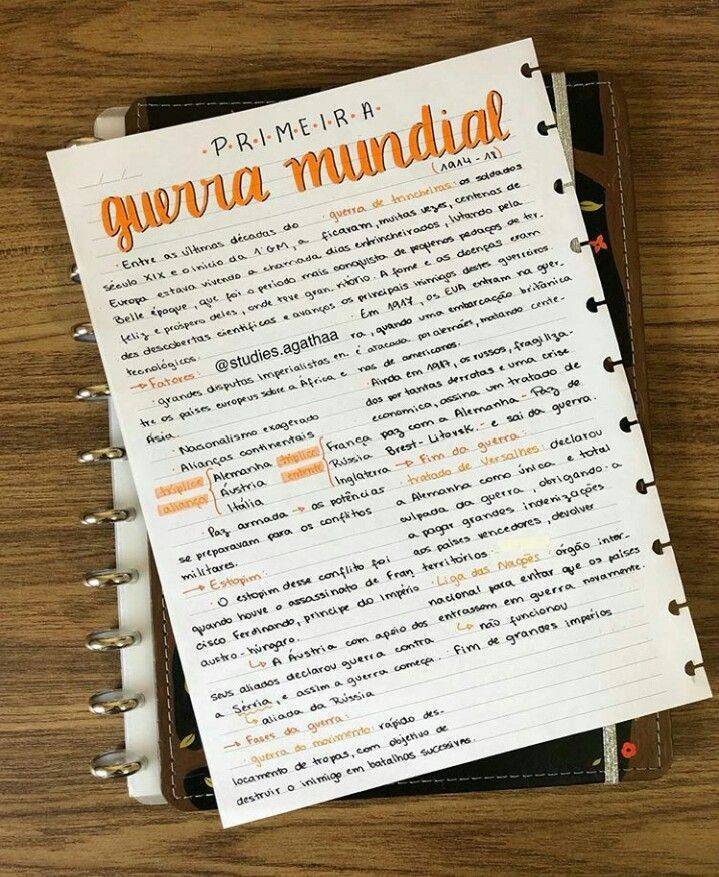 PRIMEIRA
guerra mundial
(1914-18)
· Entre as últimas décadas do
século XIX e o início da 1ª GM, a
Europa estava vivendo a chamada
Belle époque, que foi o período mais
feliz e próspero deles, onde teve gran-
des descobertas científicas e avanços
tecnológicos.
@studies.agathaa
→ Fatores:
· grandes disputas imperialistas en-
tre os países europeus sobre a África e
Ásia.
· Nacionalismo exagerado
· Alianças continentais
tríplice aliança { Alemanha
Áustria
Itália
tríplice entente { França
Rússia
Inglaterra
Paz armada → as potências
se preparavam para os conflitos
militares.
→ Estopim:
· O estopim desse conflito foi
quando houve o assassinato de Fran-
cisco Ferdinando, príncipe do Império
austro-húngaro.
↳ A Áustria com apoio dos
seus aliados declarou guerra contra
a Sérvia, e assim a guerra começa.
↳ aliada da Rússia
→ Fases da guerra:
· guerra do movimento: rápido des-
locamento de tropas, com objetivo de
destruir o inimigo em batalhas sucessivas.
· guerra de trincheiras: os soldados
ficaram, muitas vezes, centenas de
dias entrincheirados, lutando pela
conquista de pequenos pedaços de ter-
ritório. A fome e as doenças eram
os principais inimigos destes guerreiros.
· Em 1917, os EUA entram na guer-
ra, quando uma embarcação britânica
é atacada por alemães, matando cente-
nas de americanos.
· Ainda em 1917, os russos, fragiliza-
dos por tantas derrotas e uma crise
economica, assina um tratado de
paz com a Alemanha - Paz de
Brest-Litovsk - e sai da guerra.
→ Fim da guerra:
· tratado de Versalhes: declarou
a Alemanha como única e total
culpada da guerra, obrigando-a
a pagar grandes indenizações
aos países vencedores, devolver
territórios
· Liga das Nações: órgão inter-
nacional para evitar que os países
entrassem em guerra novamente.
↳ não funcionou
· Fim de grandes impérios